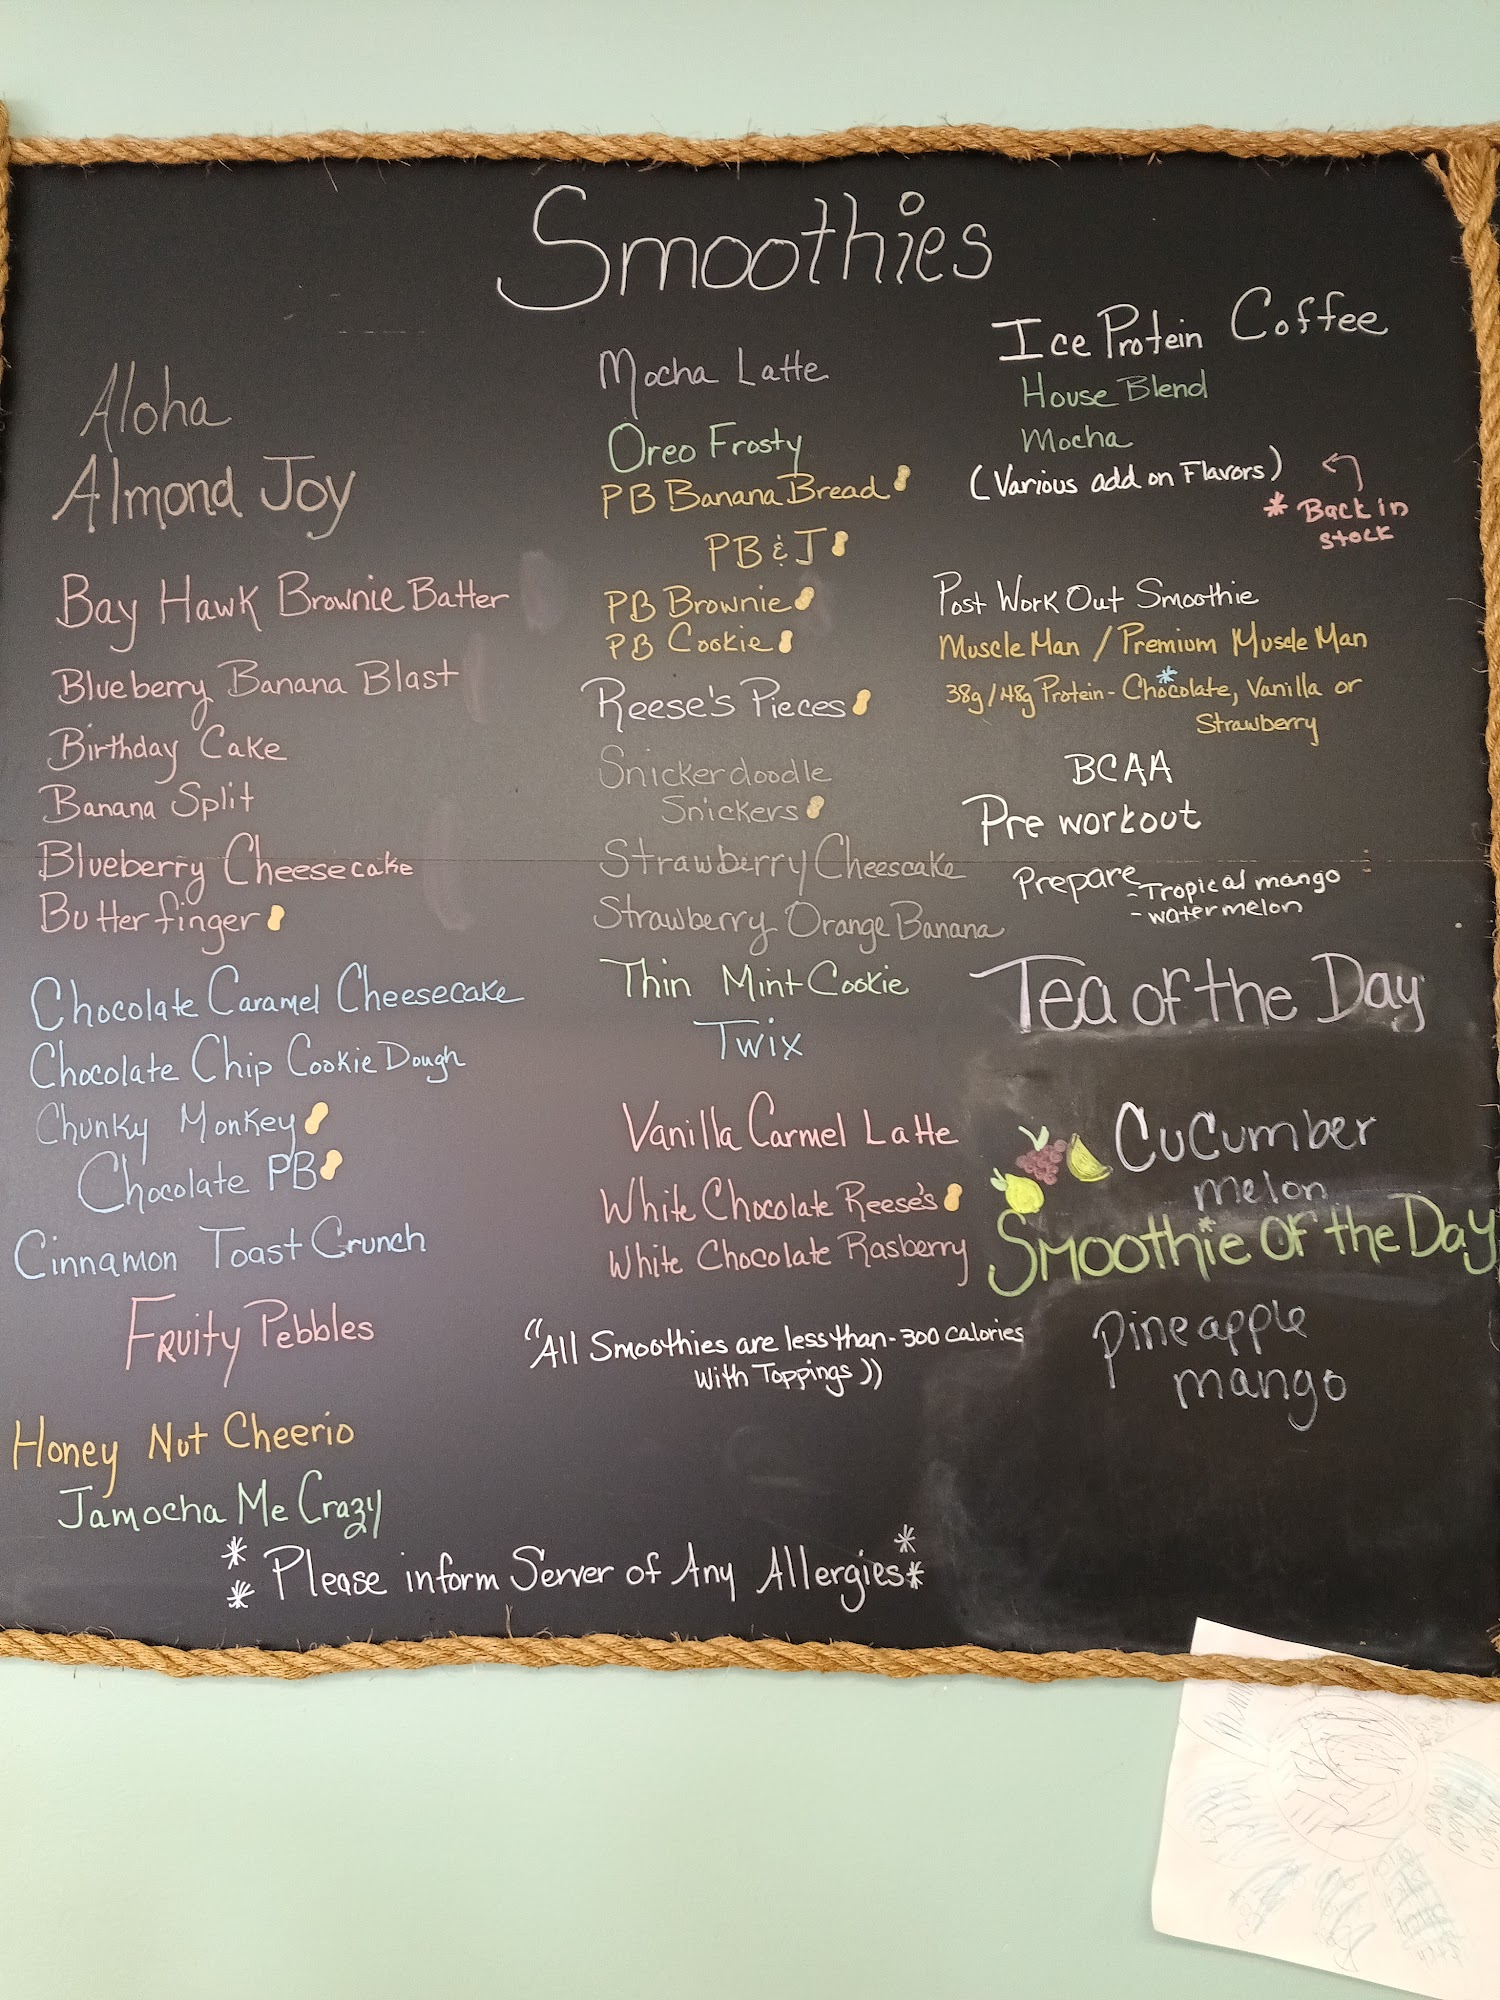 Smoothies
Aloha
Almond Joy
Bay Hawk Brownie Batter
Blueberry Banana Blast
Birthday Cake
Banana Split
Blueberry Cheesecake
Butterfinger
Chocolate Caramel Cheesecake
Chocolate Chip Cookie Dough
Chunky Monkey
Chocolate PB
Cinnamon Toast Crunch
Fruity Pebbles
Honey Nut Cheerio
Jamocha Me Crazy
Mocha Latte
Oreo Frosty
PB Banana Bread
PB & J
PB Brownie
PB Cookie
Reese's Pieces
Snickerdoodle
Snickers
Strawberry Cheescake
Strawberry Orange Banana
Thin Mint Cookie
Twix
Vanilla Carmel Latte
White Chocolate Reese's
White Chocolate Rasberry
((All Smoothies are less than - 300 calories
with Toppings))
Ice Protein Coffee
House Blend
Mocha
(Various add on Flavors)
* Back in
stock
Post Work Out Smoothie
Muscle Man / Premium Muscle Man
38g/48g Protein - Chocolate, Vanilla or
Strawberry
BCAA
Pre workout
Prepare - Tropical mango
- watermelon
Tea of the Day
Cucumber
melon
Smoothie Of the Day
pineapple
mango
** Please inform Server of Any Allergies **